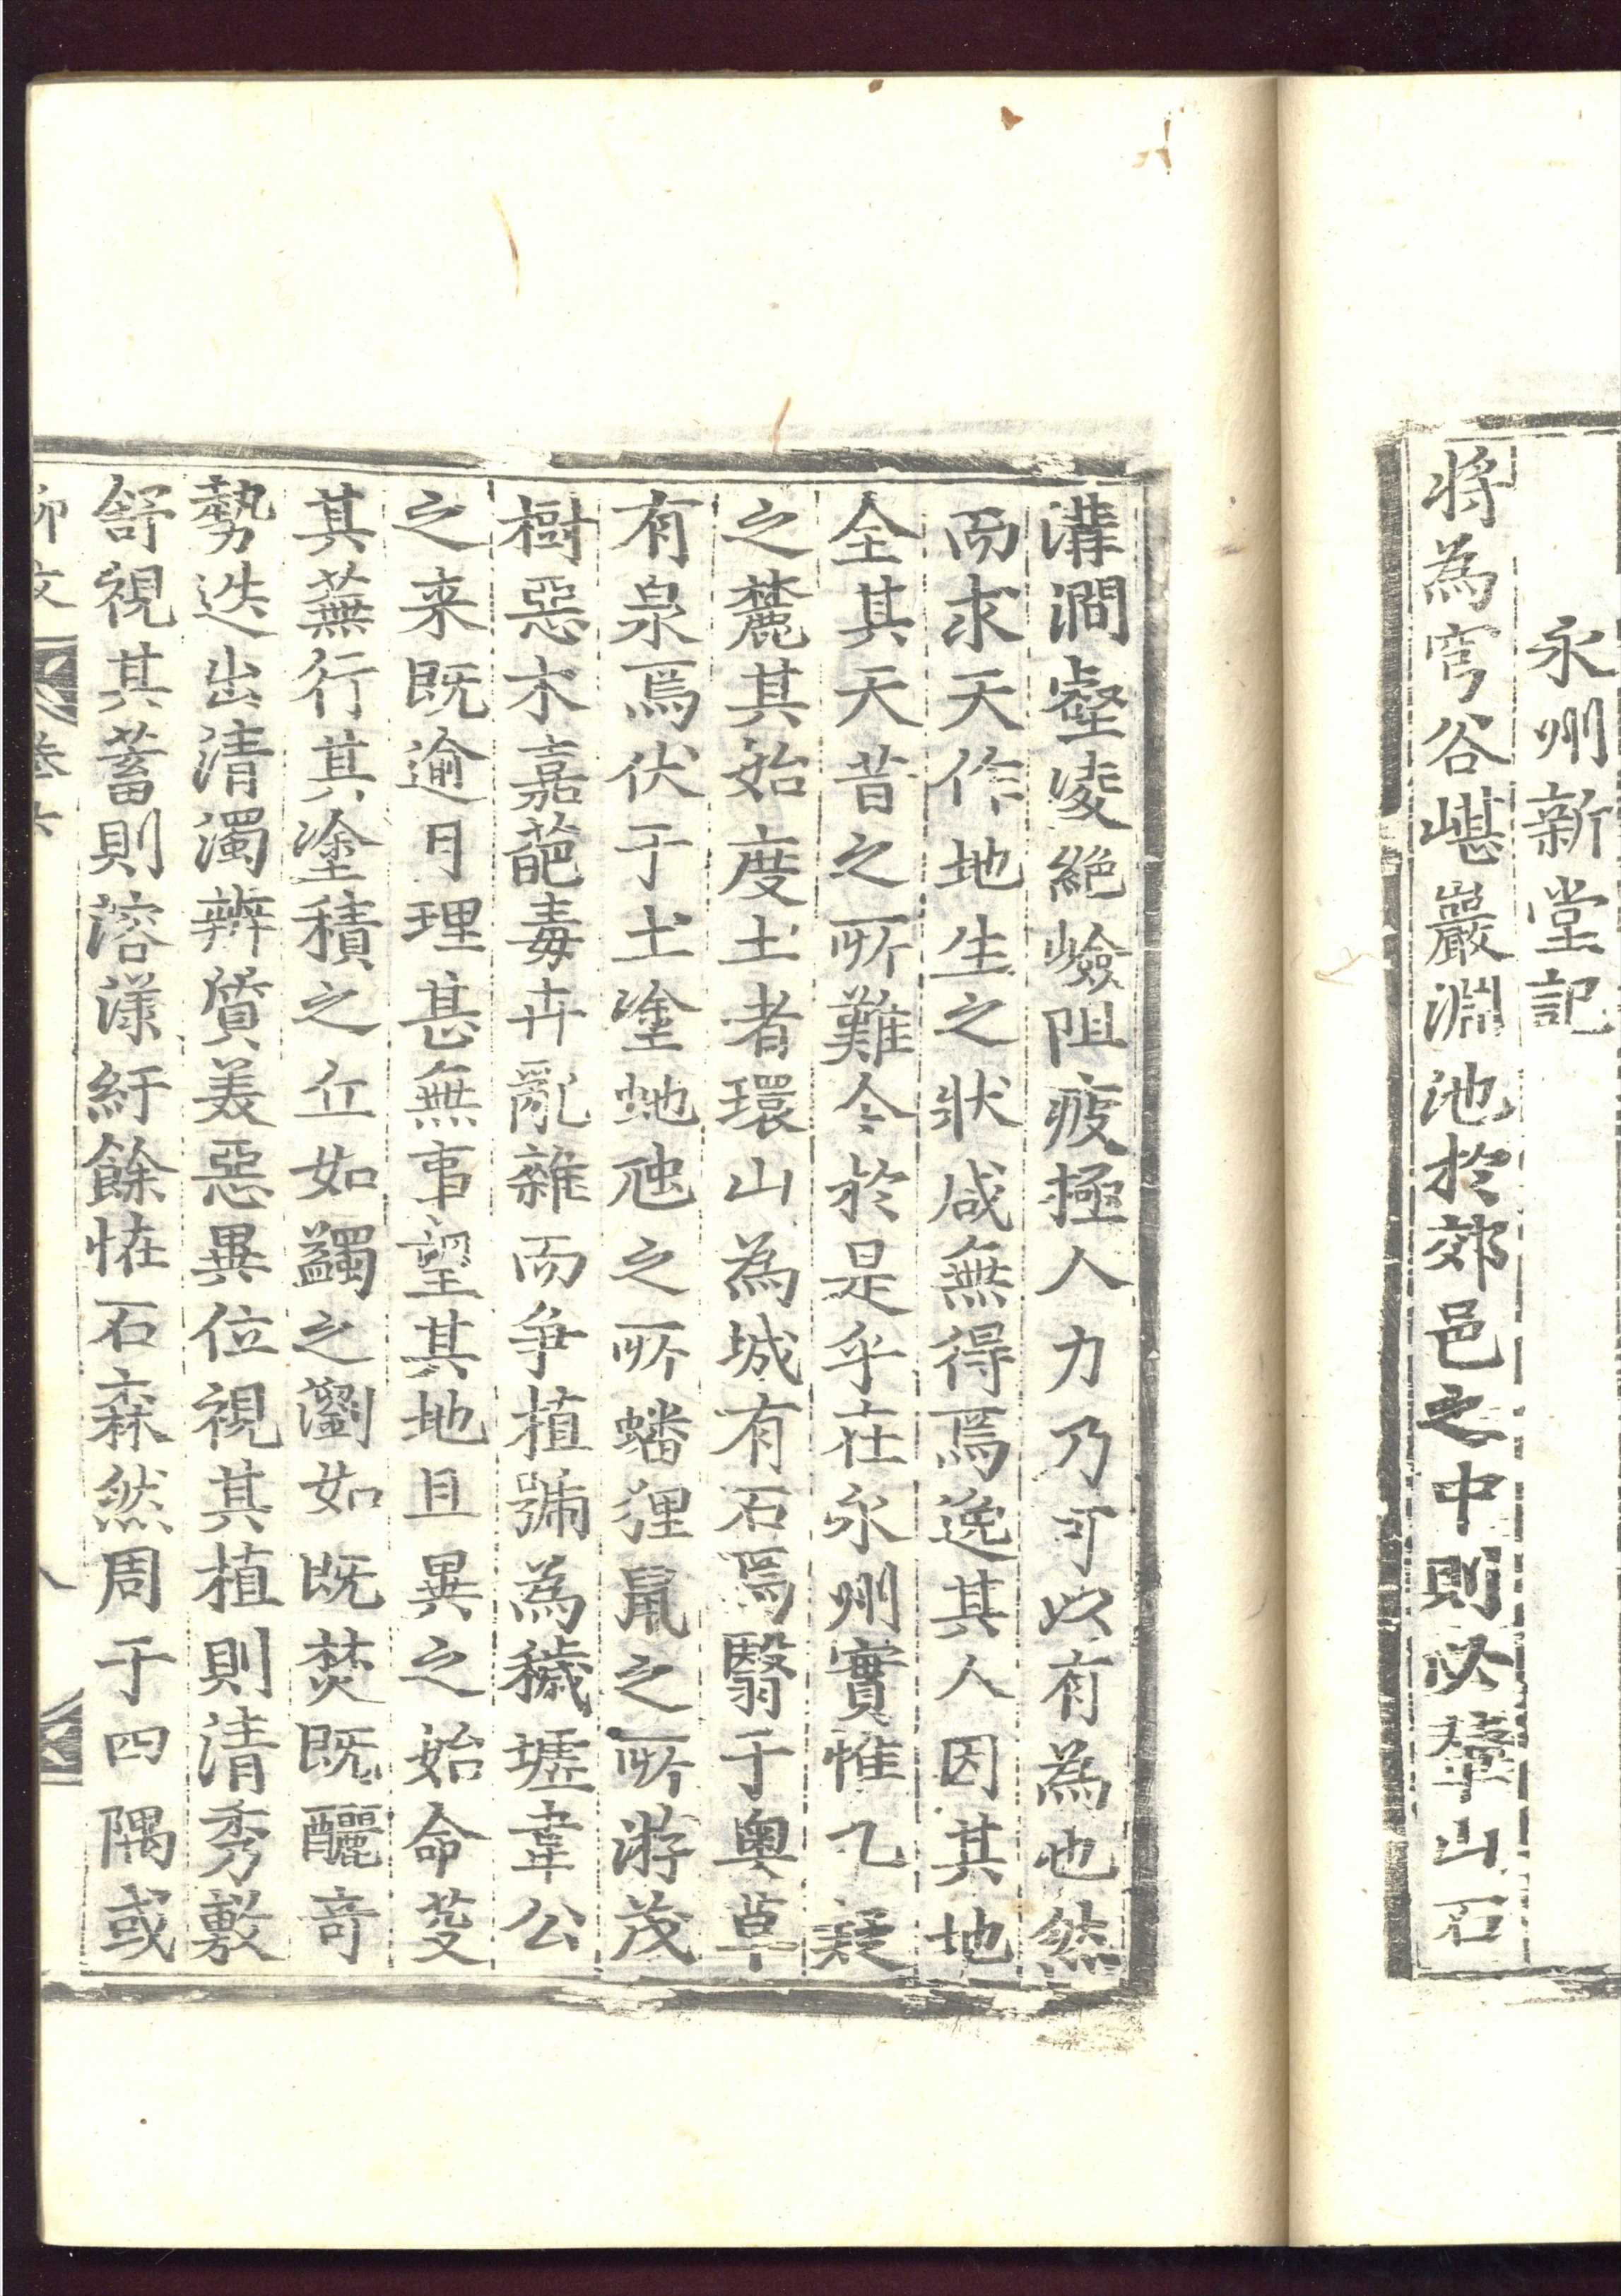 永州新堂記
將為穹谷嵁巖淵池於郊邑之中則必輦山石
溝澗壑凌絕嶮阻疲極人力乃可以有為也然
而求天作地生之狀咸無得焉逸其人因其地
全其天昔之所難今於是乎在永州實惟九疑
之麓其始度土者環山為城有石焉翳于奧草
有泉焉伏于土塗虵虺之所蟠狸鼠之所游茂
樹惡木嘉葩毒卉亂雜而爭植號為穢墟韋公
之来既逾月理甚無事望其地且異之始命芟
其蕪行其塗積之丘如蠲之瀏如既焚既釃奇
勢迭出清濁辨質美惡異位視其植則清秀敷
舒視其蓄則溶漾紆餘恠石森然周于四隅或
柳文 卷六 八